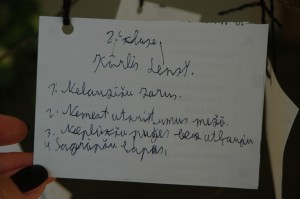 2. klase.
Kārlis Lenst.
1. Nelauzīšu zarus.
2. Nemest atkritumus mežā.
3. Neplūkšu puķes bez atļaujas
4. Sagrābšu lapas.